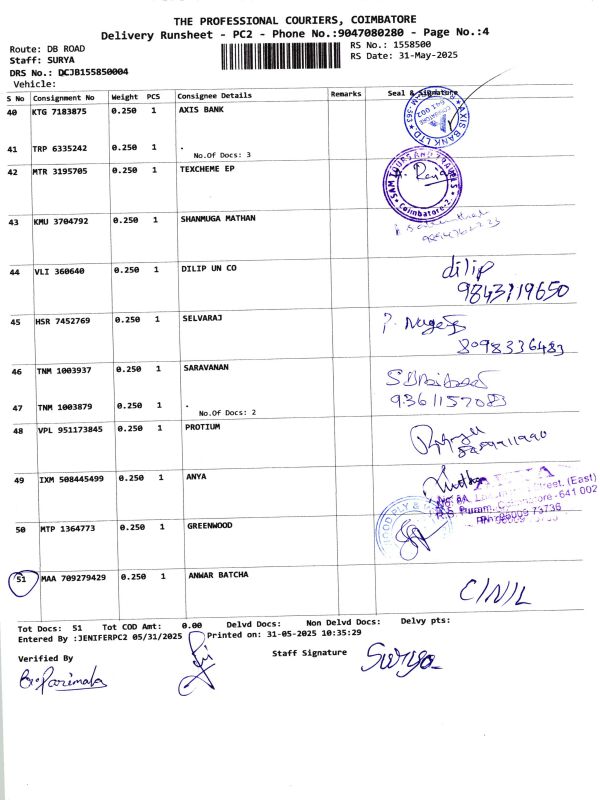 THE PROFESSIONAL COURIERS, COIMBATORE
Delivery Runsheet - PC2 - Phone No.:9047080280 - Page No.:4
Route: DB ROAD
RS No.: 1558500
Staff: SURYA
RS Date: 31-May-2025
DRS No.: DCJB155850004
Vehicle:
S No Consignment No Weight PCS Consignee Details Remarks Seal & Signature
40 KTG 7183875 0.250 1 AXIS BANK
AXIS BANK LTD.
COIMBATORE
641 002
41 TRP 6335242 0.250 1 .
No.Of Docs: 3
42 MTR 3195705 0.250 1 TEXCHEME EP
SAM TOURS AND TRAVELS
Coimbatore-2
43 KMU 3704792 0.250 1 SHANMUGA MATHAN
44 VLI 360640 0.250 1 DILIP UN CO
dilip
9843119650
45 HSR 7452769 0.250 1 SELVARAJ
8098336483
46 TNM 1003937 0.250 1 SARAVANAN
9361157083
47 TNM 1003879 0.250 1 .
No.Of Docs: 2
48 VPL 951173845 0.250 1 PROTIUM
49 IXM 508445499 0.250 1 ANYA
Street. (East)
R.S. Puram, Coimbatore - 641 002
50 MTP 1364773 0.250 1 GREENWOOD
51 MAA 709279429 0.250 1 ANWAR BATCHA
C/N/L
Tot Docs: 51 Tot COD Amt: 0.00 Delvd Docs: Non Delvd Docs: Delvy pts:
Entered By :JENIFERPC2 05/31/2025 Printed on: 31-05-2025 10:35:29
Verified By
Staff Signature
Surya